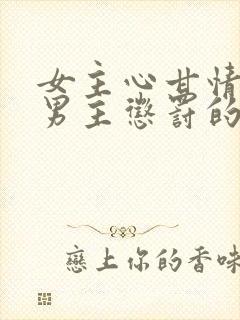 女主心甘情
男主懲罰的
戀上你的香味